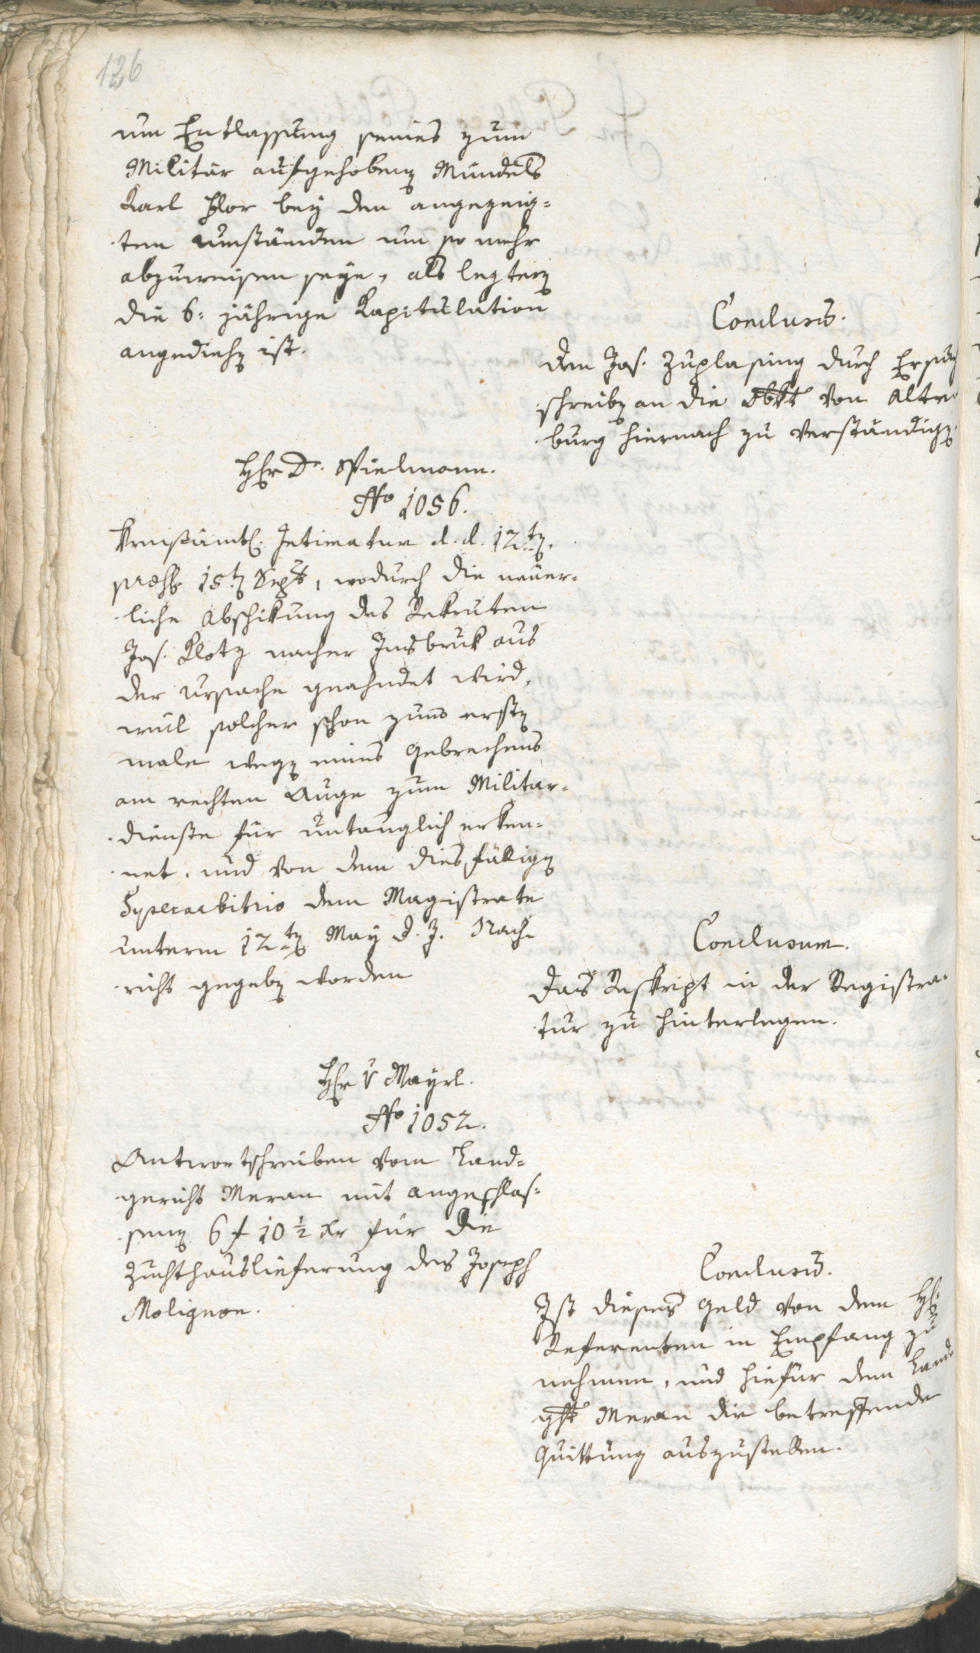 126
um Entlassung seines zum
Militär aufgehobenen Mündels
Karl Flor bey den angezeig-
ten Umständen um so mehr
abzuweisen seye, als lezterer
die 6: jährige Kapitulation
angediehen ist.
Conclusum.
Dem Jos. Zuplasing durch Ersuch
schreiben an die Obrkt von Alten
burg hiernach zu verständigen.
Herr Dr. Spielmann.
No 1056.
Kreisämtl. Intimatum d. d. 12ten
praes. 15ten Sept, wodurch die neuer-
liche Abschikung des Rekruten
Jos. Klotz nacher Insbruk aus
der Ursache geahndet wird,
weil solcher schon zum ersten
male wegen eines Gebrechens
am rechten Auge zum Militär-
dienste für untauglich erken-
net, und von dem diesfälligen
Syperarbitrio dem Magistrate
unterm 12ten May d. J. Nach-
richt gegeben worden
Conclusum.
Das Reskript in der Registra-
tur zu hinterlegen.
Herr v Mayrl.
No 1052.
Antwortschreiben vom Land-
gericht Meran mit angeschlos-
senen 6 f 10 ½ xr für die
Zuchthauslieferung des Joseph
Molignon.
Conclusum.
Ist dieses Geld von dem H:
Referenten in Empfang zu
nehmen, und hiefür dem Land
ght Meran die betreffende
Quittung auszustellen.